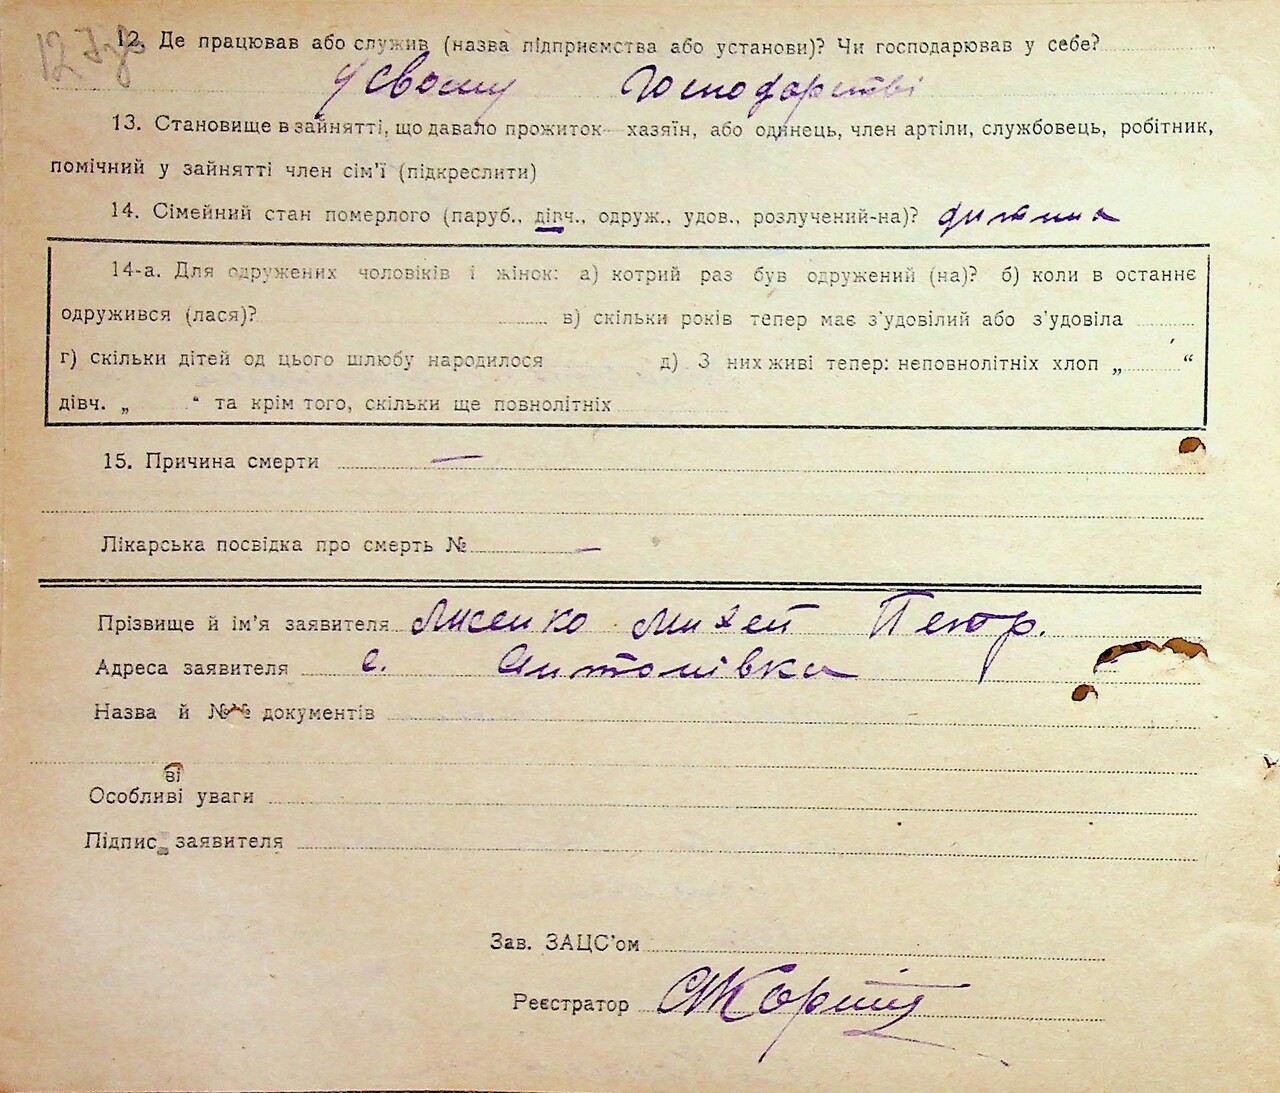 12. Де працював або служив (назва підприємства або установи)? Чи господарював у себе?
у своєму господарстві
13. Становище в зайнятті, що давало прожиток — хазяїн, або одинець, член артіли, службовець, робітник,
помічний у зайнятті член сім'ї (підкреслити)
14. Сімейний стан померлого (паруб., дівч., одруж., удов., розлучений-на)? дитина
14-а. Для одружених чоловіків і жінок: а) котрий раз був одружений (на)? б) коли в останнє
одружився (лася)? в) скільки років тепер має з'удовілий або з'удовіла
г) скільки дітей од цього шлюбу народилося д) З них живі тепер: неповнолітніх хлоп „ “
дівч. „ “ та крім того, скільки ще повнолітніх
15. Причина смерти —
Лікарська посвідка про смерть № —
Прізвище й ім'я заявителя Лисенко Михей Петр.
Адреса заявителя с. Антонівка
Назва й №№ документів
ві
Особливі уваги
Підпис заявителя
Зав. ЗАЦС'ом
Реєстратор